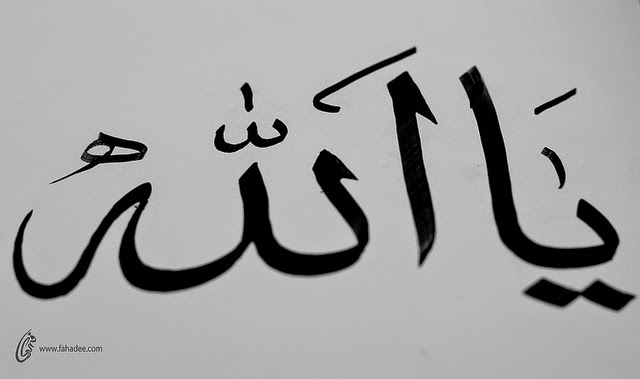 يَا اَللّٰهُ
www.fahadee.com